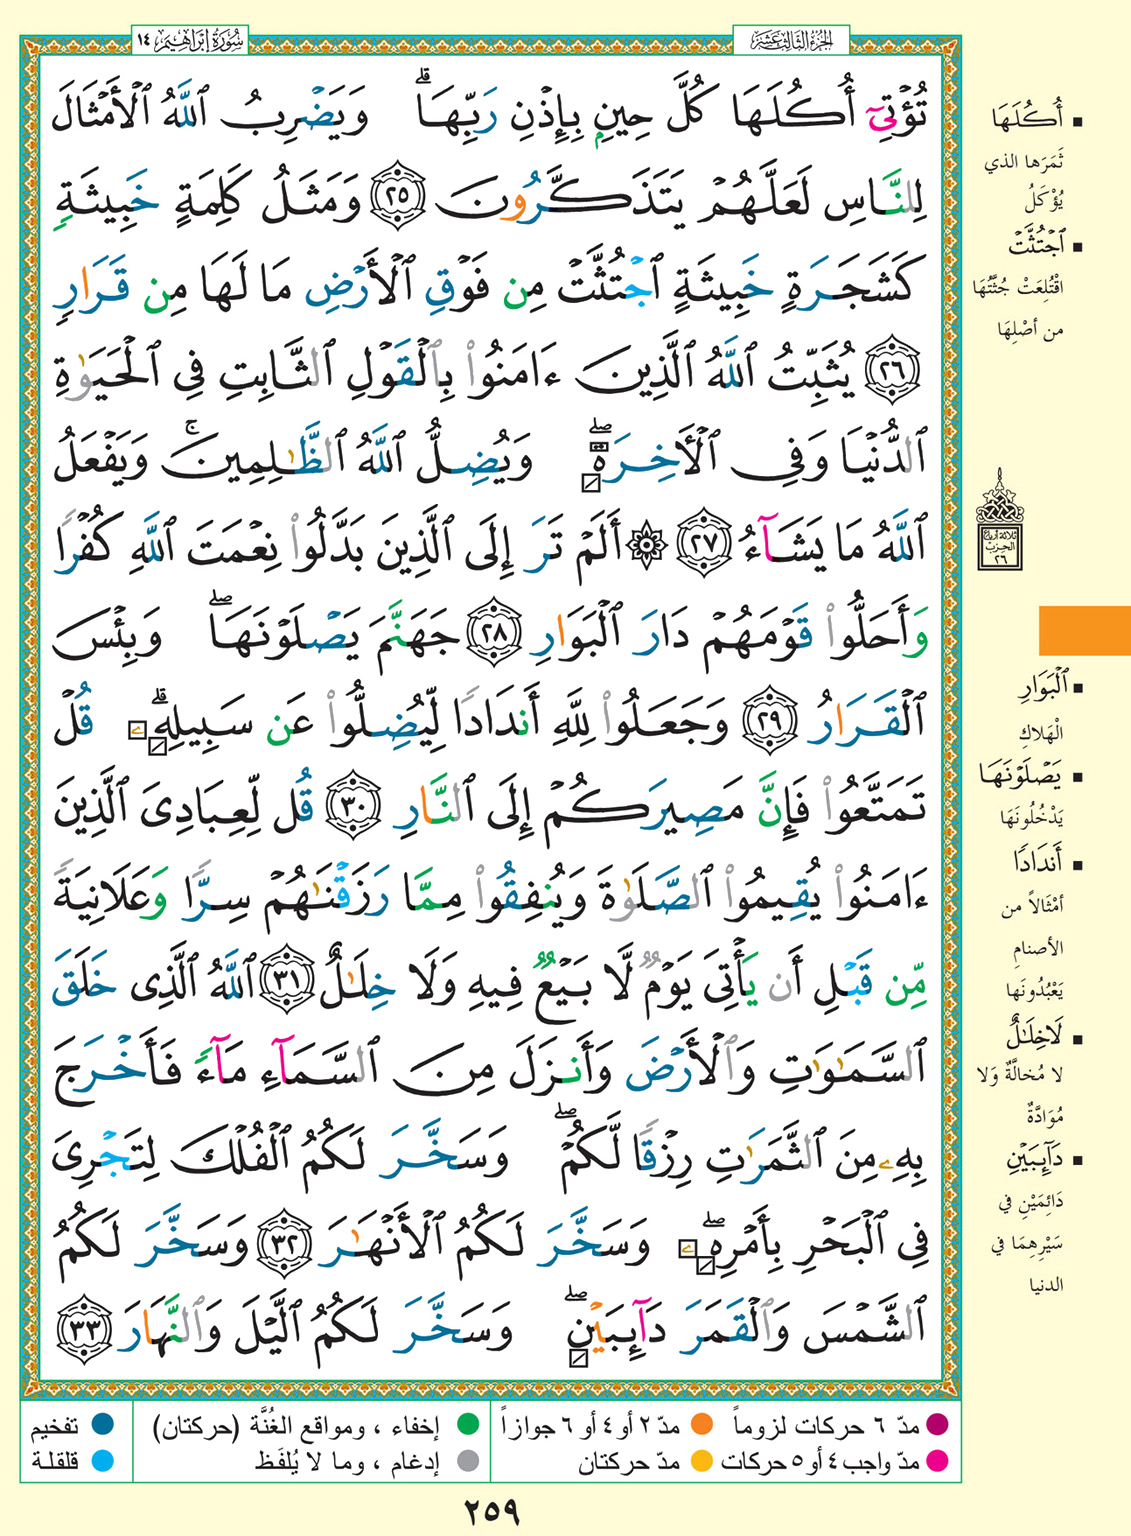 سُورَةُ إِبْرَاهِيمَ ١٤
الجُزْءُ الثَّالِثَ عَشَرَ
تُؤْتِىٓ أُكُلَهَا كُلَّ حِينٍۭ بِإِذْنِ رَبِّهَاۗ وَيَضْرِبُ ٱللَّهُ ٱلْأَمْثَالَ
لِلنَّاسِ لَعَلَّهُمْ يَتَذَكَّرُونَ ٢٥ وَمَثَلُ كَلِمَةٍ خَبِيثَةٍ
كَشَجَرَةٍ خَبِيثَةٍ ٱجْتُثَّتْ مِن فَوْقِ ٱلْأَرْضِ مَا لَهَا مِن قَرَارٍ
٢٦ يُثَبِّتُ ٱللَّهُ ٱلَّذِينَ ءَامَنُوا۟ بِٱلْقَوْلِ ٱلثَّابِتِ فِى ٱلْحَيَوٰةِ
ٱلدُّنْيَا وَفِى ٱلْأَخِرَةِۖ وَيُضِلُّ ٱللَّهُ ٱلظَّٰلِمِينَۚ وَيَفْعَلُ
ٱللَّهُ مَا يَشَآءُ ٢٧ ۞ أَلَمْ تَرَ إِلَى ٱلَّذِينَ بَدَّلُوا۟ نِعْمَتَ ٱللَّهِ كُفْرًا
وَأَحَلُّوا۟ قَوْمَهُمْ دَارَ ٱلْبَوَارِ ٢٨ جَهَنَّمَ يَصْلَوْنَهَاۖ وَبِئْسَ
ٱلْقَرَارُ ٢٩ وَجَعَلُوا۟ لِلَّهِ أَندَادًا لِّيُضِلُّوا۟ عَن سَبِيلِهِۦۗ قُلْ
تَمَتَّعُوا۟ فَإِنَّ مَصِيرَكُمْ إِلَى ٱلنَّارِ ٣٠ قُل لِّعِبَادِىَ ٱلَّذِينَ
ءَامَنُوا۟ يُقِيمُوا۟ ٱلصَّلَوٰةَ وَيُنفِقُوا۟ مِمَّا رَزَقْنَٰهُمْ سِرًّا وَعَلَانِيَةً
مِّن قَبْلِ أَن يَأْتِىَ يَوْمٌ لَّا بَيْعٌ فِيهِ وَلَا خِلَٰلٌ ٣١ ٱللَّهُ ٱلَّذِى خَلَقَ
ٱلسَّمَٰوَٰتِ وَٱلْأَرْضَ وَأَنزَلَ مِنَ ٱلسَّمَآءِ مَآءً فَأَخْرَجَ
بِهِۦ مِنَ ٱلثَّمَرَٰتِ رِزْقًا لَّكُمْۖ وَسَخَّرَ لَكُمُ ٱلْفُلْكَ لِتَجْرِىَ
فِى ٱلْبَحْرِ بِأَمْرِهِۦۖ وَسَخَّرَ لَكُمُ ٱلْأَنْهَٰرَ ٣٢ وَسَخَّرَ لَكُمُ
ٱلشَّمْسَ وَٱلْقَمَرَ دَآئِبَيْنِۖ وَسَخَّرَ لَكُمُ ٱلَّيْلَ وَٱلنَّهَارَ ٣٣
أُكُلَهَا
ثَمَرَها الذي
يُؤكَلُ
ٱجْتُثَّتْ
اقْتُلِعَتْ جُثَّتُهَا
من أصْلِهَا
ثلاثة أرباع
الحزب
٢٦
ٱلْبَوَارِ
الْهَلاكِ
يَصْلَوْنَهَا
يَدْخُلُونَهَا
أَندَادًا
أمْثَالاً من
الأصنامِ
يَعْبُدُونَها
لَاخِلَٰلٌ
لا مُخالَّةٌ وَلا
مُوَادَّةٌ
دَآئِبَيْنِ
دَائِمَيْنِ في
سَيْرِهِمَا في
الدنيا
مدّ ٦ حركات لزوماً
مدّ ٢ أو ٤ أو ٦ جوازاً
إخفاء ، ومواقع الغُنَّة (حركتان)
تفخيم
مدّ واجب ٤ أو ٥ حركات
مدّ حركتان
إدغام ، وما لا يُلفَظ
قلقلة
٢٥٩